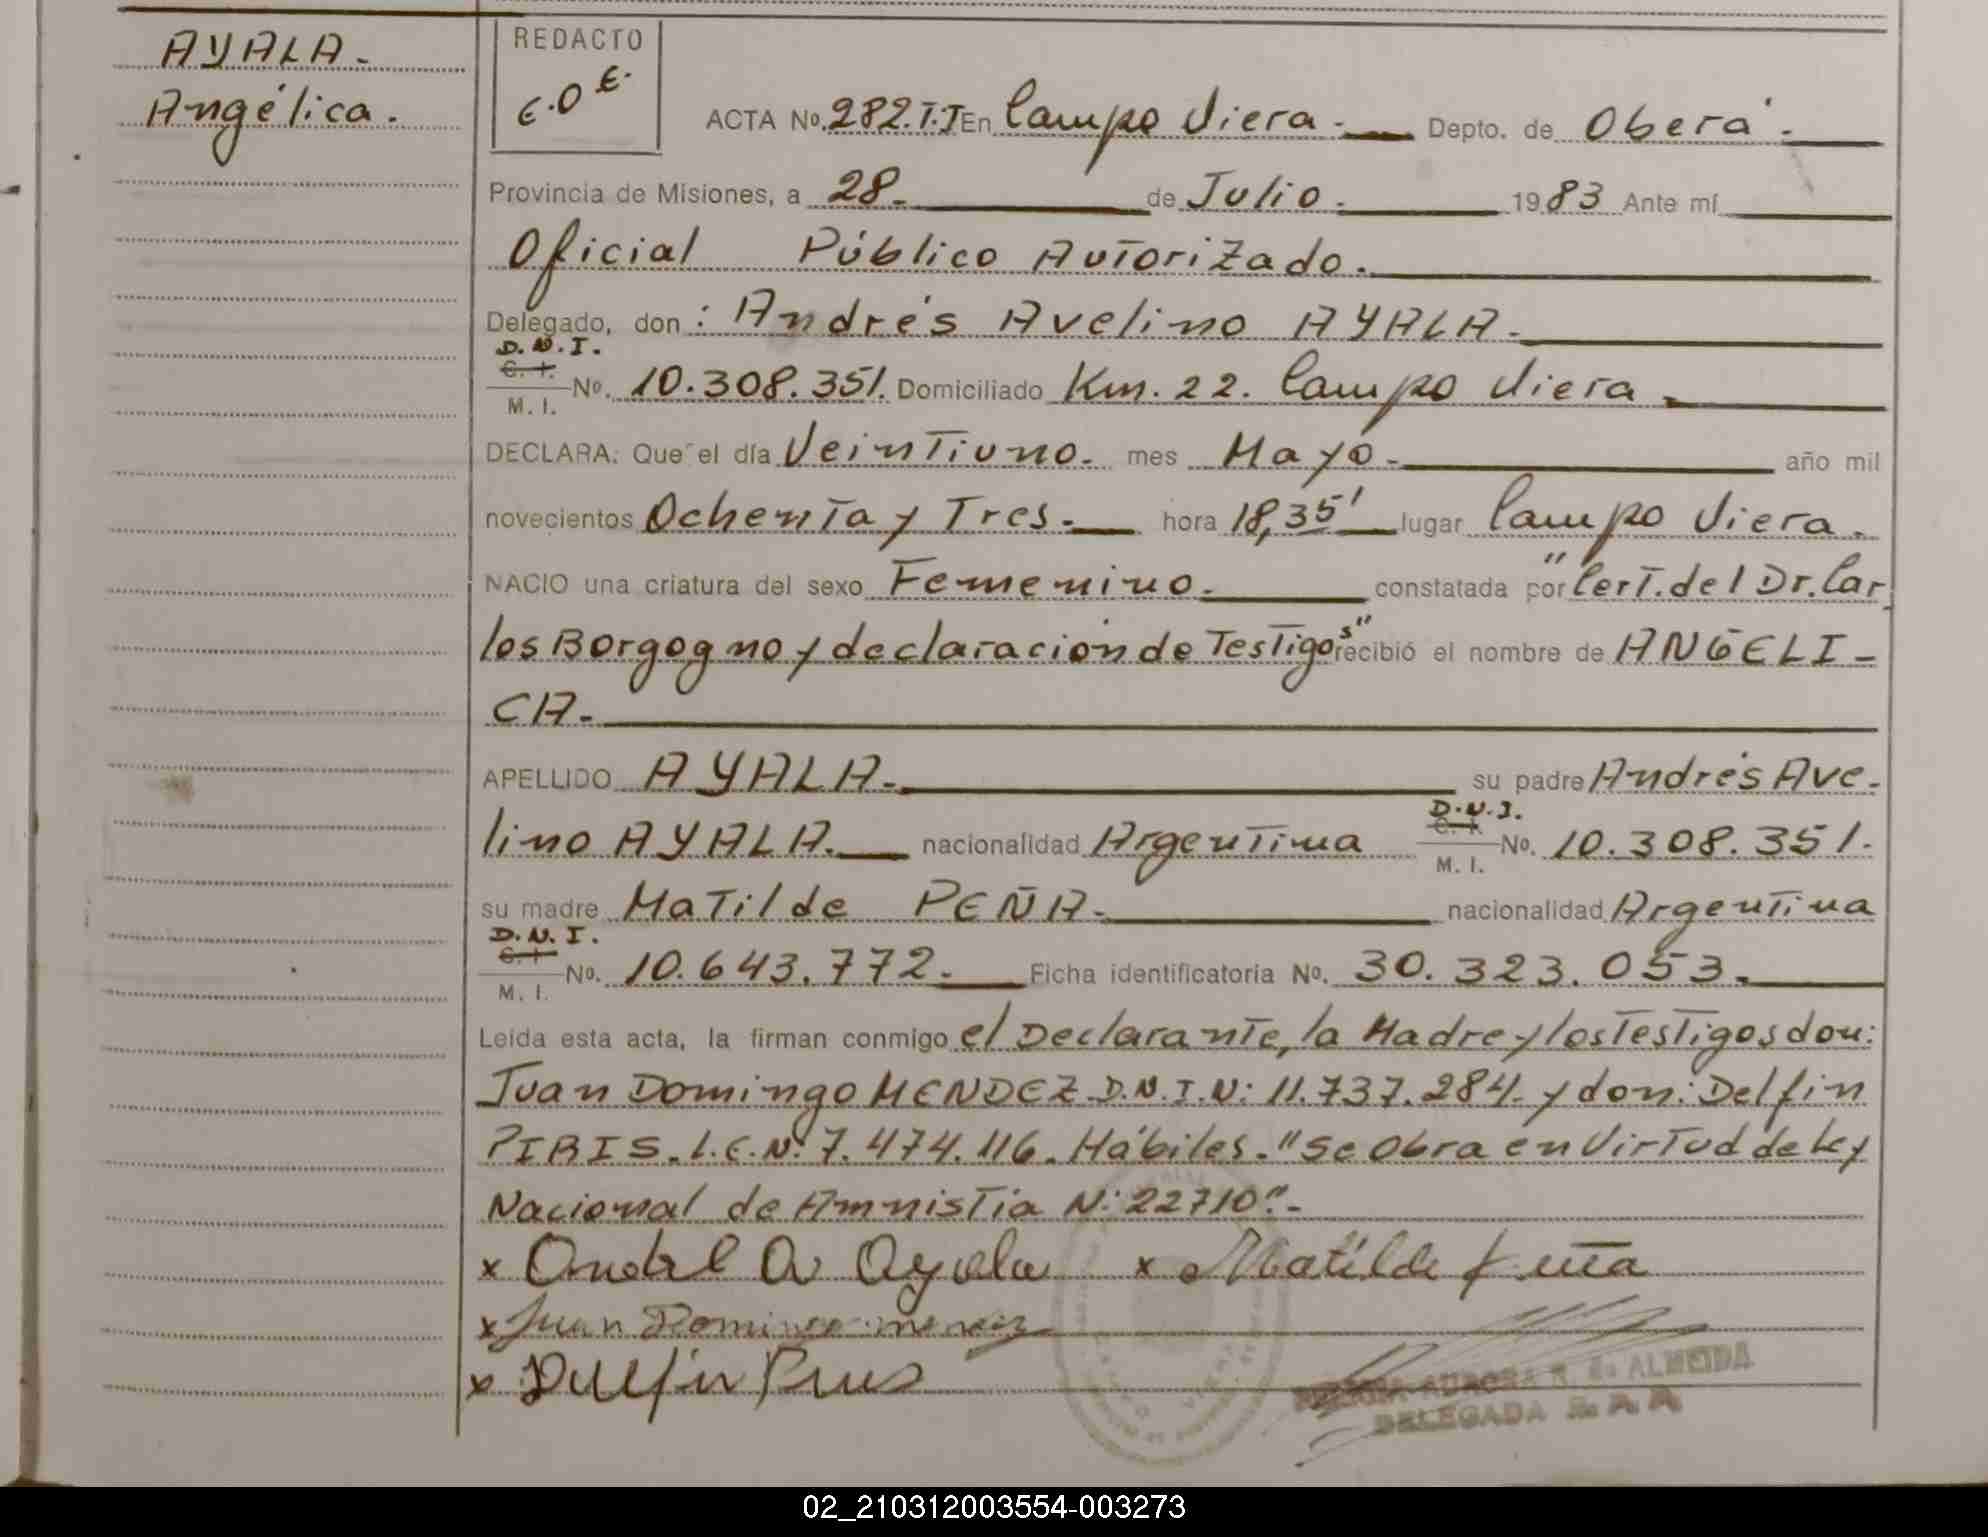 AYALA.
Angélica.
REDACTO
E.O E.
ACTA Nº. 282. T.I En Campo Viera. Depto. de Oberá.
Provincia de Misiones, a 28. de Julio. 1983 Ante mí
Oficial Público Autorizado.
Delegado, don: Andrés Avelino AYALA.
D.N.I.
C. I.
M. I.
Nº. 10.308.351. Domiciliado Km. 22. Campo Viera.
DECLARA: Que el día Veintiuno. mes Mayo. año mil
novecientos Ochenta y Tres. hora 18,35' lugar Campo Viera.
NACIO una criatura del sexo Femenino. constatada por "Cert. del Dr. Car
los Borgogno y declaración de Testigos" recibió el nombre de ANGELI-
CA.
APELLIDO AYALA. su padre Andrés Ave-
lino AYALA. nacionalidad Argentina
D.N.I.
C. I.
M. I.
Nº. 10.308.351.
su madre Matilde PEÑA. nacionalidad Argentina
D.N.I.
C. I.
M. I.
Nº. 10.643.772. Ficha identificatoria Nº. 30.323.053.
Leída esta acta, la firman conmigo el Declarante, la Madre y los Testigos don:
Juan Domingo MENDEZ. D.N.I.N: 11.737.284. y don: Delfin
PIRIS. L.E.Nº 7.474.116. Hábiles. "Se Obra en Virtud de Ley
Nacional de Amnistia N: 22710".
x Andrés A Ayala x Matilde Peña
x Juan Domingo mendez
x Delfin Piris
AURORA R. de ALMEIDA
DELEGADA
02_210312003554-003273